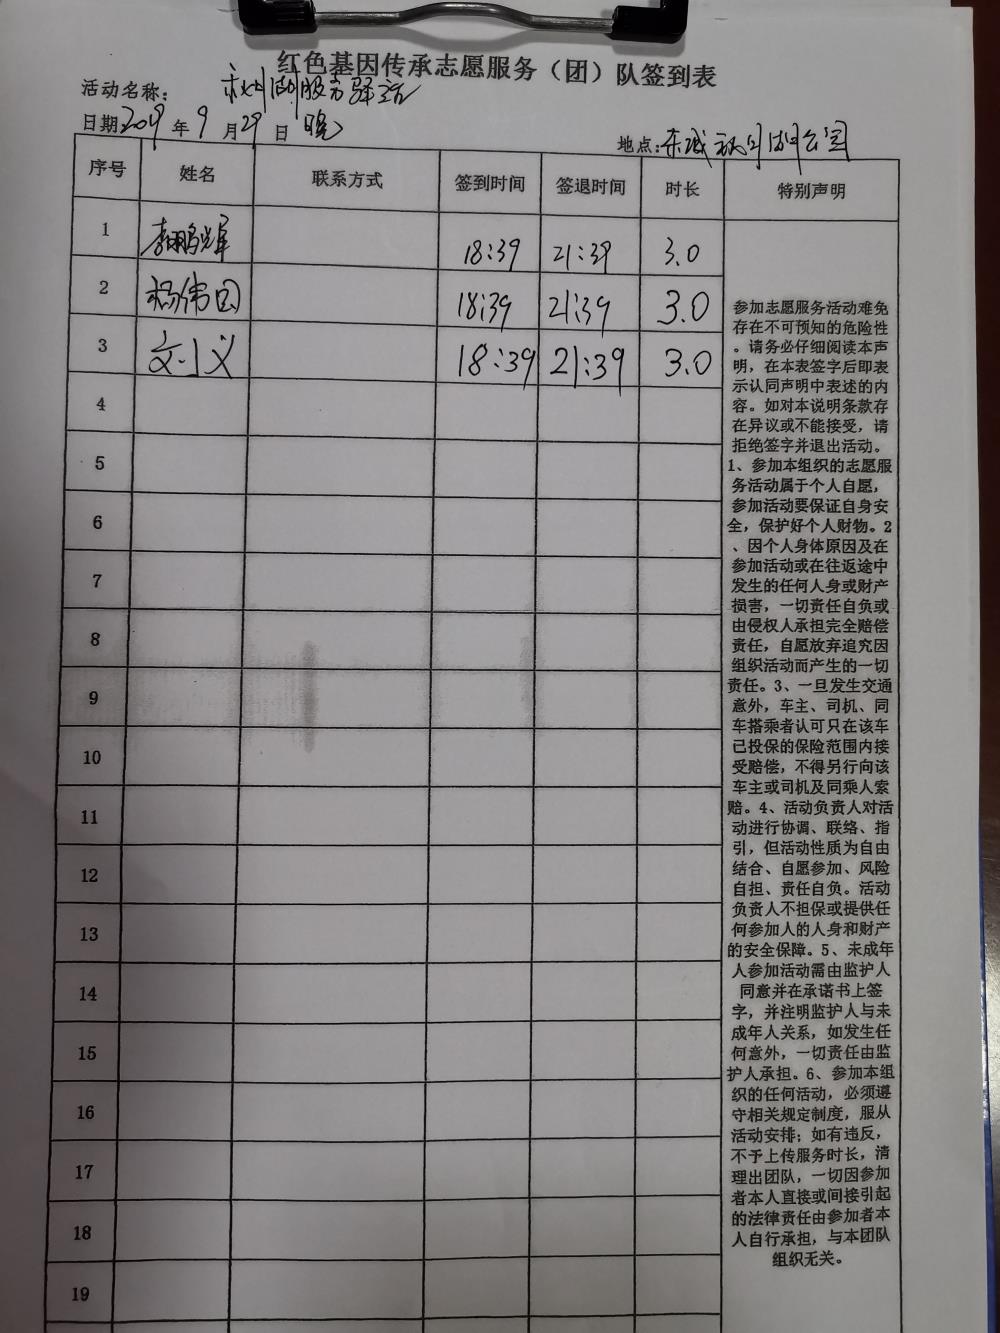 红色基因传承志愿服务（团）队签到表
活动名称： 湖服务驿站
日期2019年9月29日 晚
地点：东城 湖公园
序号 姓名 联系方式 签到时间 签退时间 时长 特别声明
1 李鹏辉 18:39 21:39 3.0
2 杨伟国 18:39 21:39 3.0
3 文小义 18:39 21:39 3.0
4
5
6
7
8
9
10
11
12
13
14
15
16
17
18
19
参加志愿服务活动难免
存在不可预知的危险性
。请务必仔细阅读本声
明，在本表签字后即表
示认同声明中表述的内
容。如对本说明条款存
在异议或不能接受，请
拒绝签字并退出活动。
1、参加本组织的志愿服
务活动属于个人自愿，
参加活动要保证自身安
全，保护好个人财物。2
、因个人身体原因及在
参加活动或在往返途中
发生的任何人身或财产
损害，一切责任自负或
由侵权人承担完全赔偿
责任，自愿放弃追究因
组织活动而产生的一切
责任。3、一旦发生交通
意外，车主、司机、同
车搭乘者认可只在该车
已投保的保险范围内接
受赔偿，不得另行向该
车主或司机及同乘人索
赔。4、活动负责人对活
动进行协调、联络、指
引，但活动性质为自由
结合、自愿参加、风险
自担、责任自负。活动
负责人不担保或提供任
何参加人的人身和财产
的安全保障。5、未成年
人参加活动需由监护人
同意并在承诺书上签
字，并注明监护人与未
成年人关系，如发生任
何意外，一切责任由监
护人承担。6、参加本组
织的任何活动，必须遵
守相关规定制度，服从
活动安排；如有违反，
不予上传服务时长，清
理出团队，一切因参加
者本人直接或间接引起
的法律责任由参加者本
人自行承担，与本团队
组织无关。